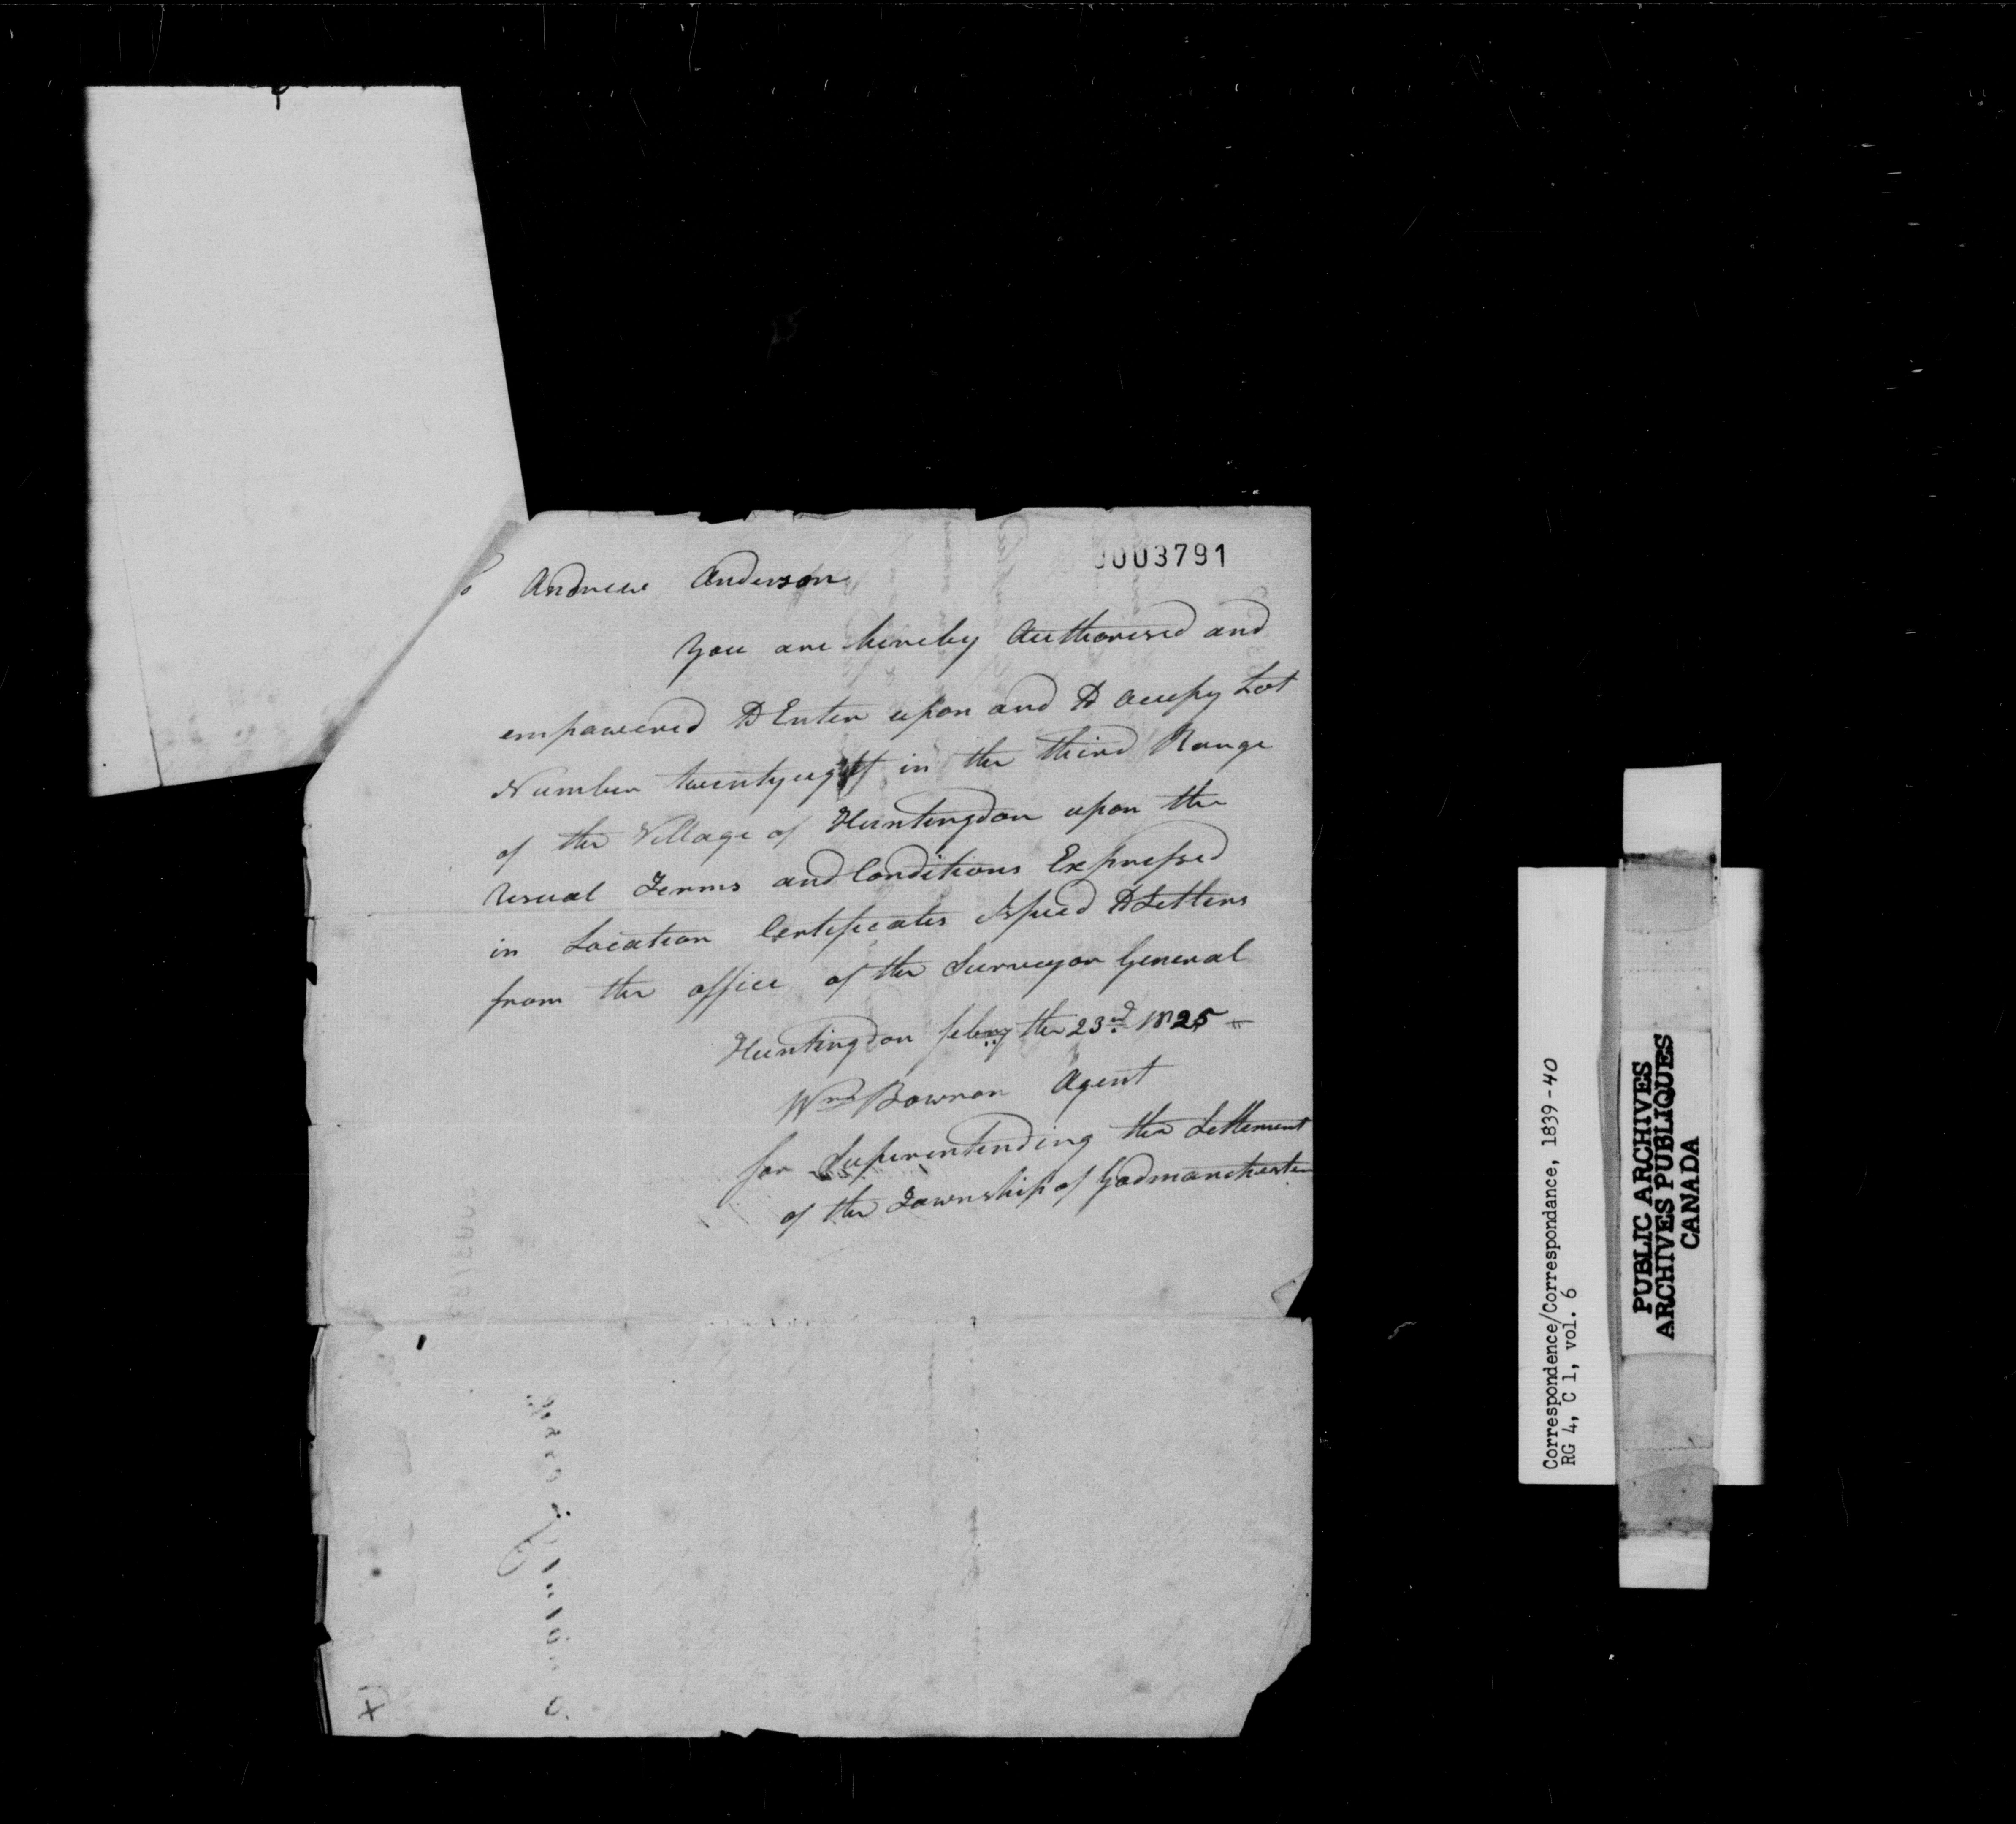 0003791
Andrew Anderson
You are hereby Authorised and
empowered to Enter upon and to occupy Lot
Number twentyeight in the third Range
of the Village of Huntingdon upon the
Usual Terms and Conditions Expressed
in Location Certificates Issued to Settlers
from the office of the Surveyor General
Huntingdon febry the 23rd 1825
Wm Bowron Agent
for Superintending the Settlement
of the Township of Godmanchester
Correspondence/Correspondance, 1839-40
RG 4, C 1, vol. 6
PUBLIC ARCHIVES
ARCHIVES PUBLIQUES
CANADA